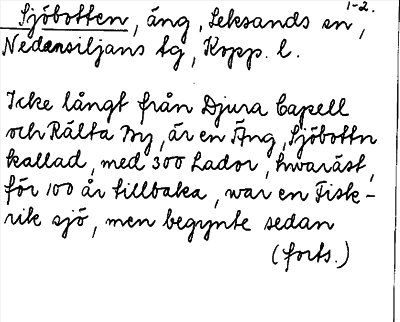 1-2.
Sjöbotten, äng, Leksands sn,
Nedansiljans tg, Kopp. l.
Icke långt från Djura Capell
och Rälta By, är en Äng, Sjöbottn
kallad, med 300 Lador, hwaräst,
för 100 år tillbaka, war en Fisk-
rik sjö, men begynte sedan
(forts.)